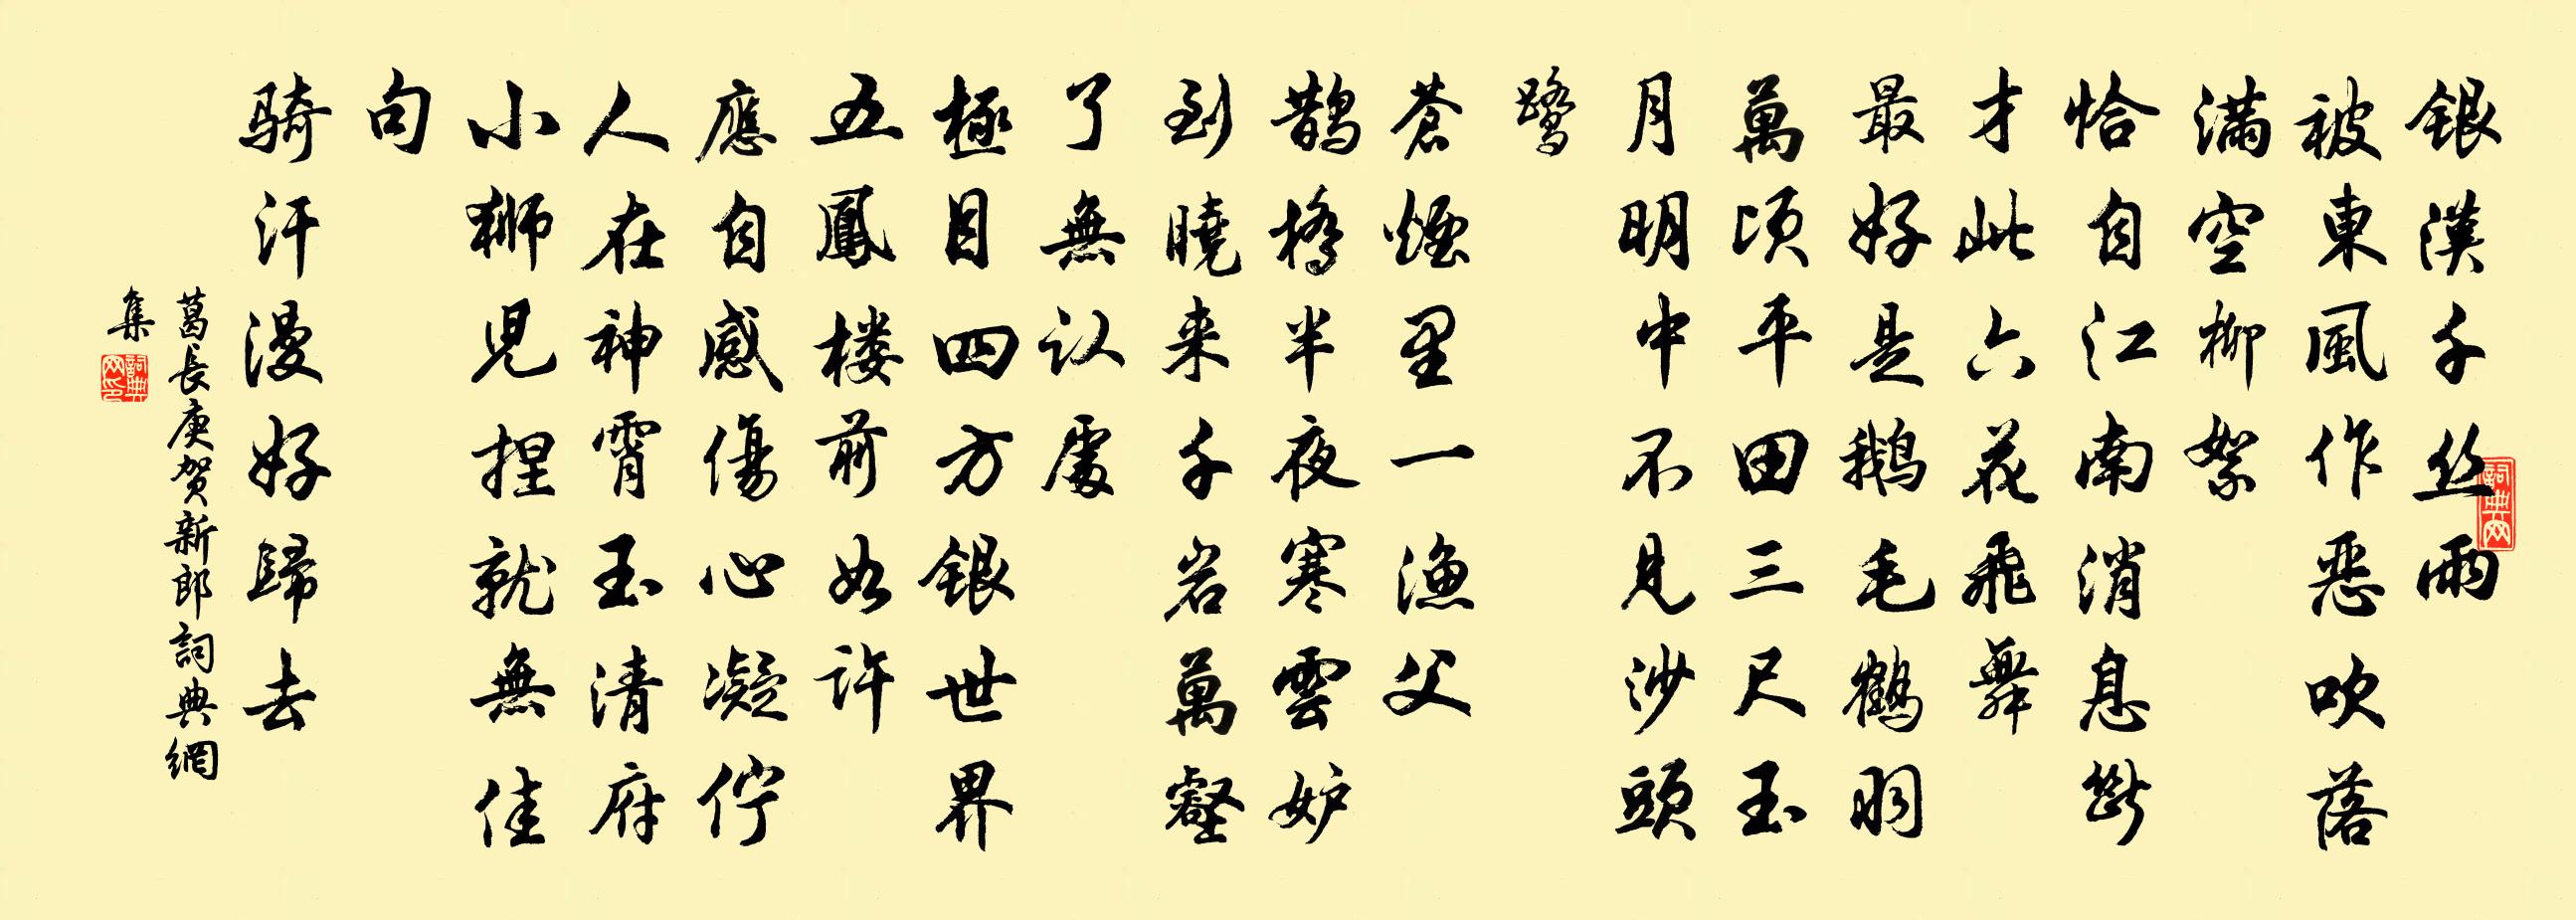 銀漢千丝雨
被東風作惡吹落
滿空柳絮
恰自江南消息斷
才此六花飛舞
最好是鹅毛鶴羽
萬頃平田三尺玉
月明中不見沙頭
鹭
蒼煙里一漁父
鵲橋半夜寒雲妒
到曉来千岩萬壑
了無认處
極目四方銀世界
五鳳楼前如許
應自感傷心凝佇
人在神霄玉清府
小狮兒捏就無佳
句
骑汗漫好歸去
葛長庚贺新郎詞典網
集
詞典网
詞典网印